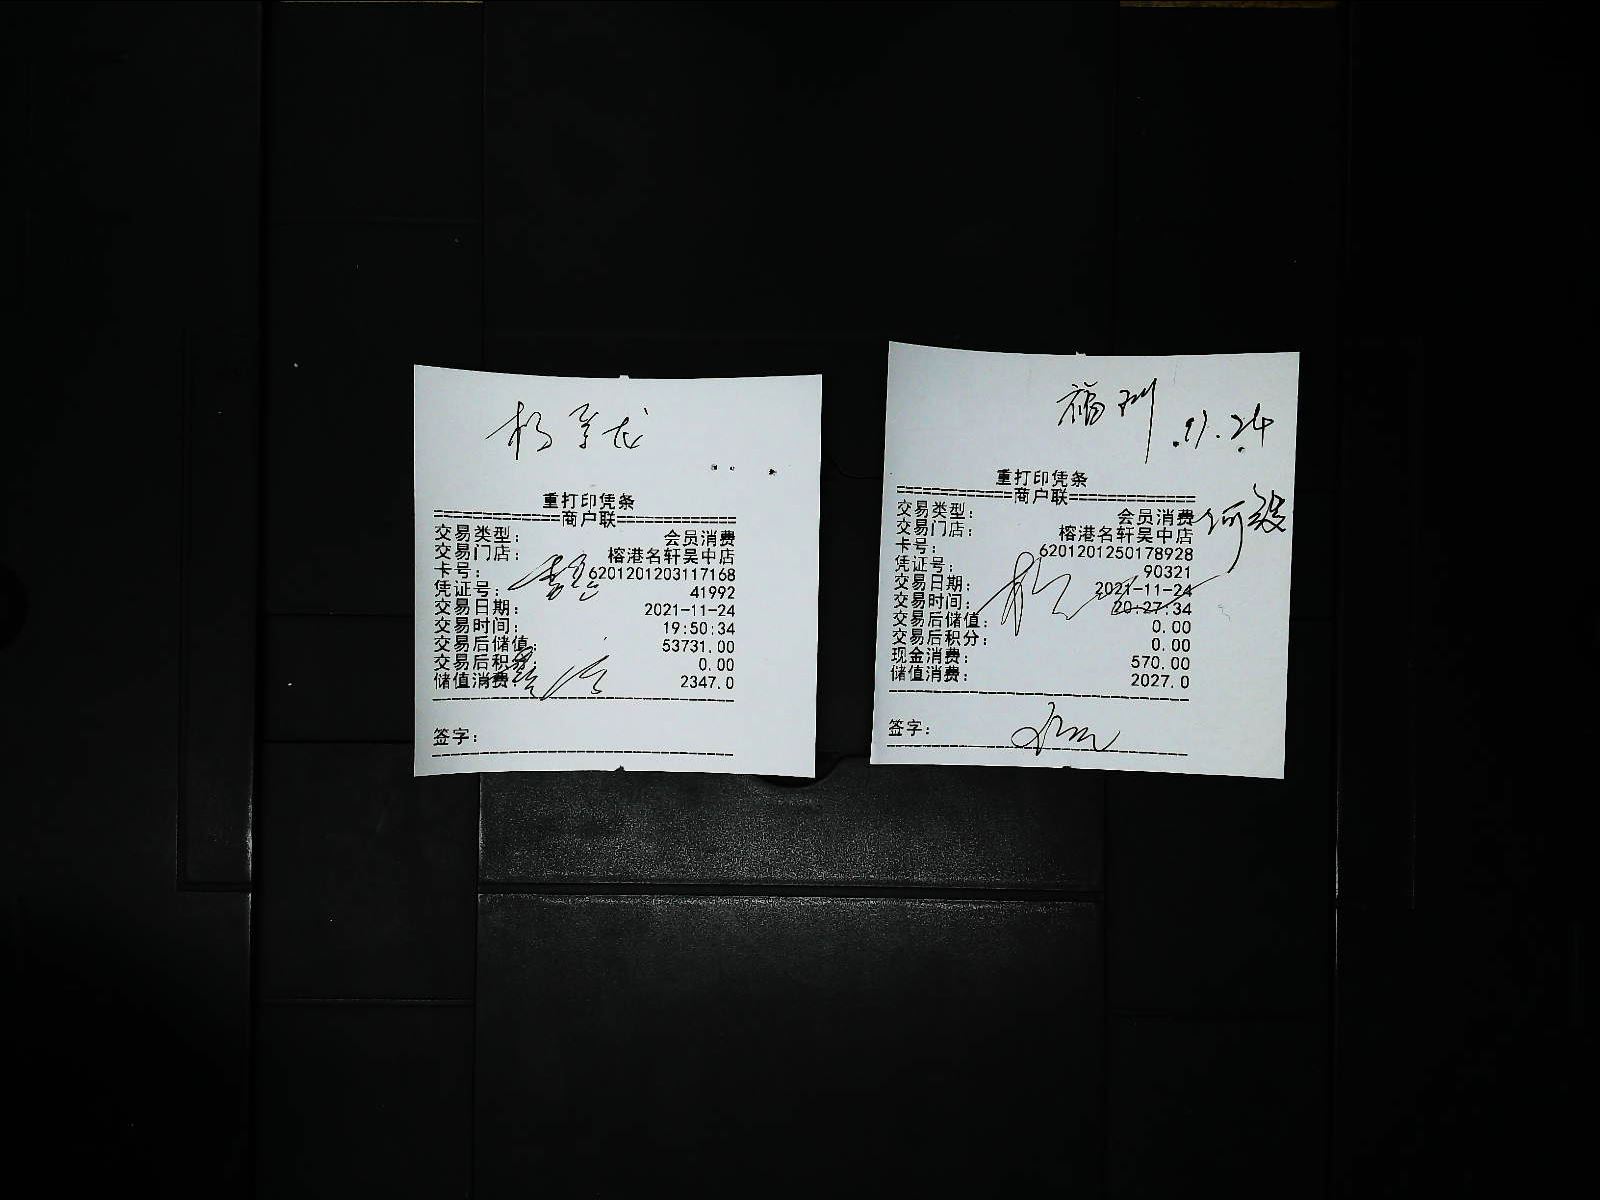 重打印凭条
============商户联============
交易类型： 会员消费
交易门店： 榕港名轩吴中店
卡号： 6201201203117168
凭证号： 41992
交易日期： 2021-11-24
交易时间： 19:50:34
交易后储值： 53731.00
交易后积分： 0.00
储值消费： 2347.0
签字：
福州 .11.24
重打印凭条
============商户联============
交易类型： 会员消费
交易门店： 榕港名轩吴中店
卡号： 6201201250178928
凭证号： 90321
交易日期： 2021-11-24
交易时间： 20:27:34
交易后储值： 0.00
交易后积分： 0.00
现金消费： 570.00
储值消费： 2027.0
签字：